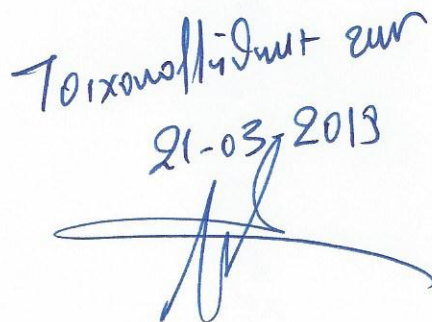 Τοιχοκολλήθηκε την
21-03-2013